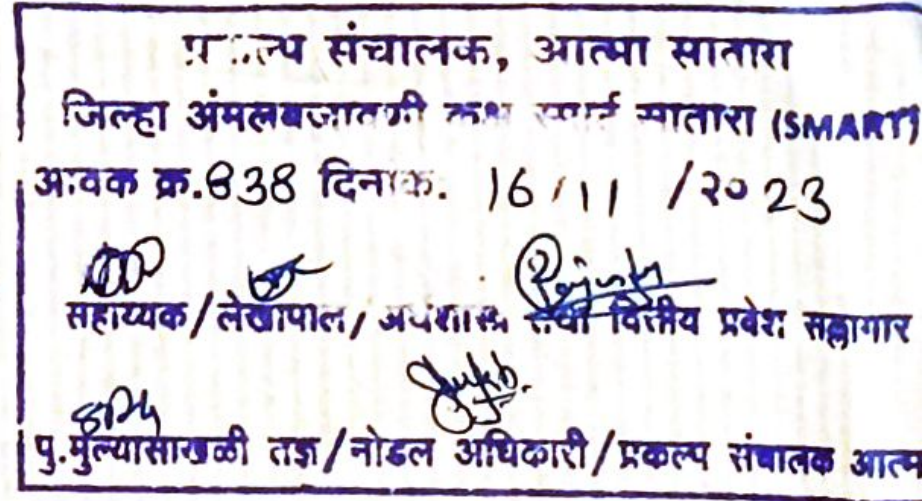 प्रकल्प संचालक, आत्मा सातारा
जिल्हा अंमलबजावणी कक्ष स्मार्ट सातारा (SMART)
आवक क्र.838 दिनांक. 16/11 /२०23
सहाय्यक/लेखापाल/ अर्थशास्त्र तथा वित्तीय प्रवेश सल्लागार
पु.मुल्यासाखळी तज्ञ/नोडल अधिकारी/प्रकल्प संचालक आत्म